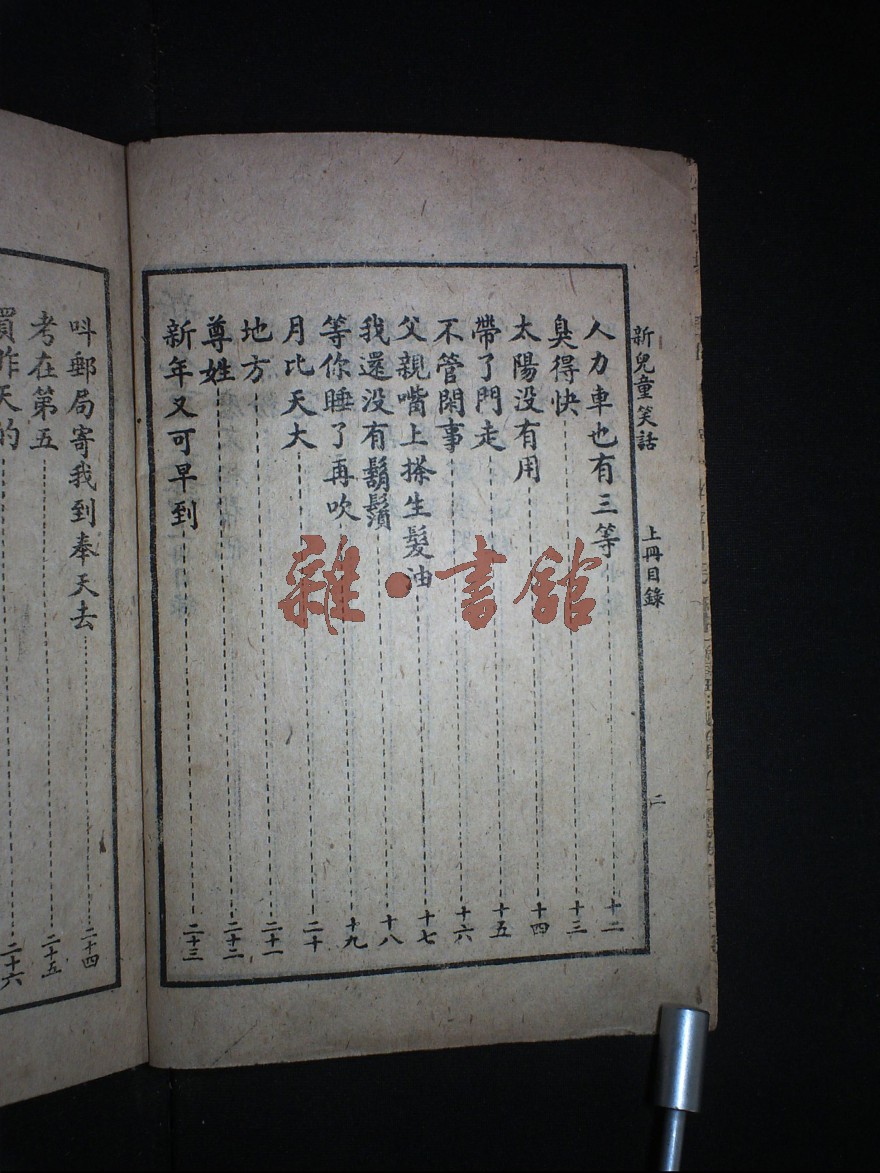 新兒童笑話 上冊目錄 二
人力車也有三等 十二
臭得快 十三
太陽沒有用 十四
帶了門走 十五
不管閑事 十六
父親嘴上搽生髮油 十七
我還沒有鬍鬚 十八
等你睡了再吹 十九
月比天大 二十
地方 二十一
尊姓 二十二
新年又可早到 二十三
叫郵局寄我到奉天去 二十四
考在第五 二十五
昨天的 二十六
雜·書館